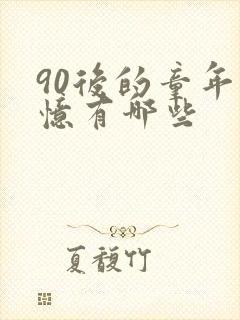 90後的童年
憶有哪些
夏馥竹